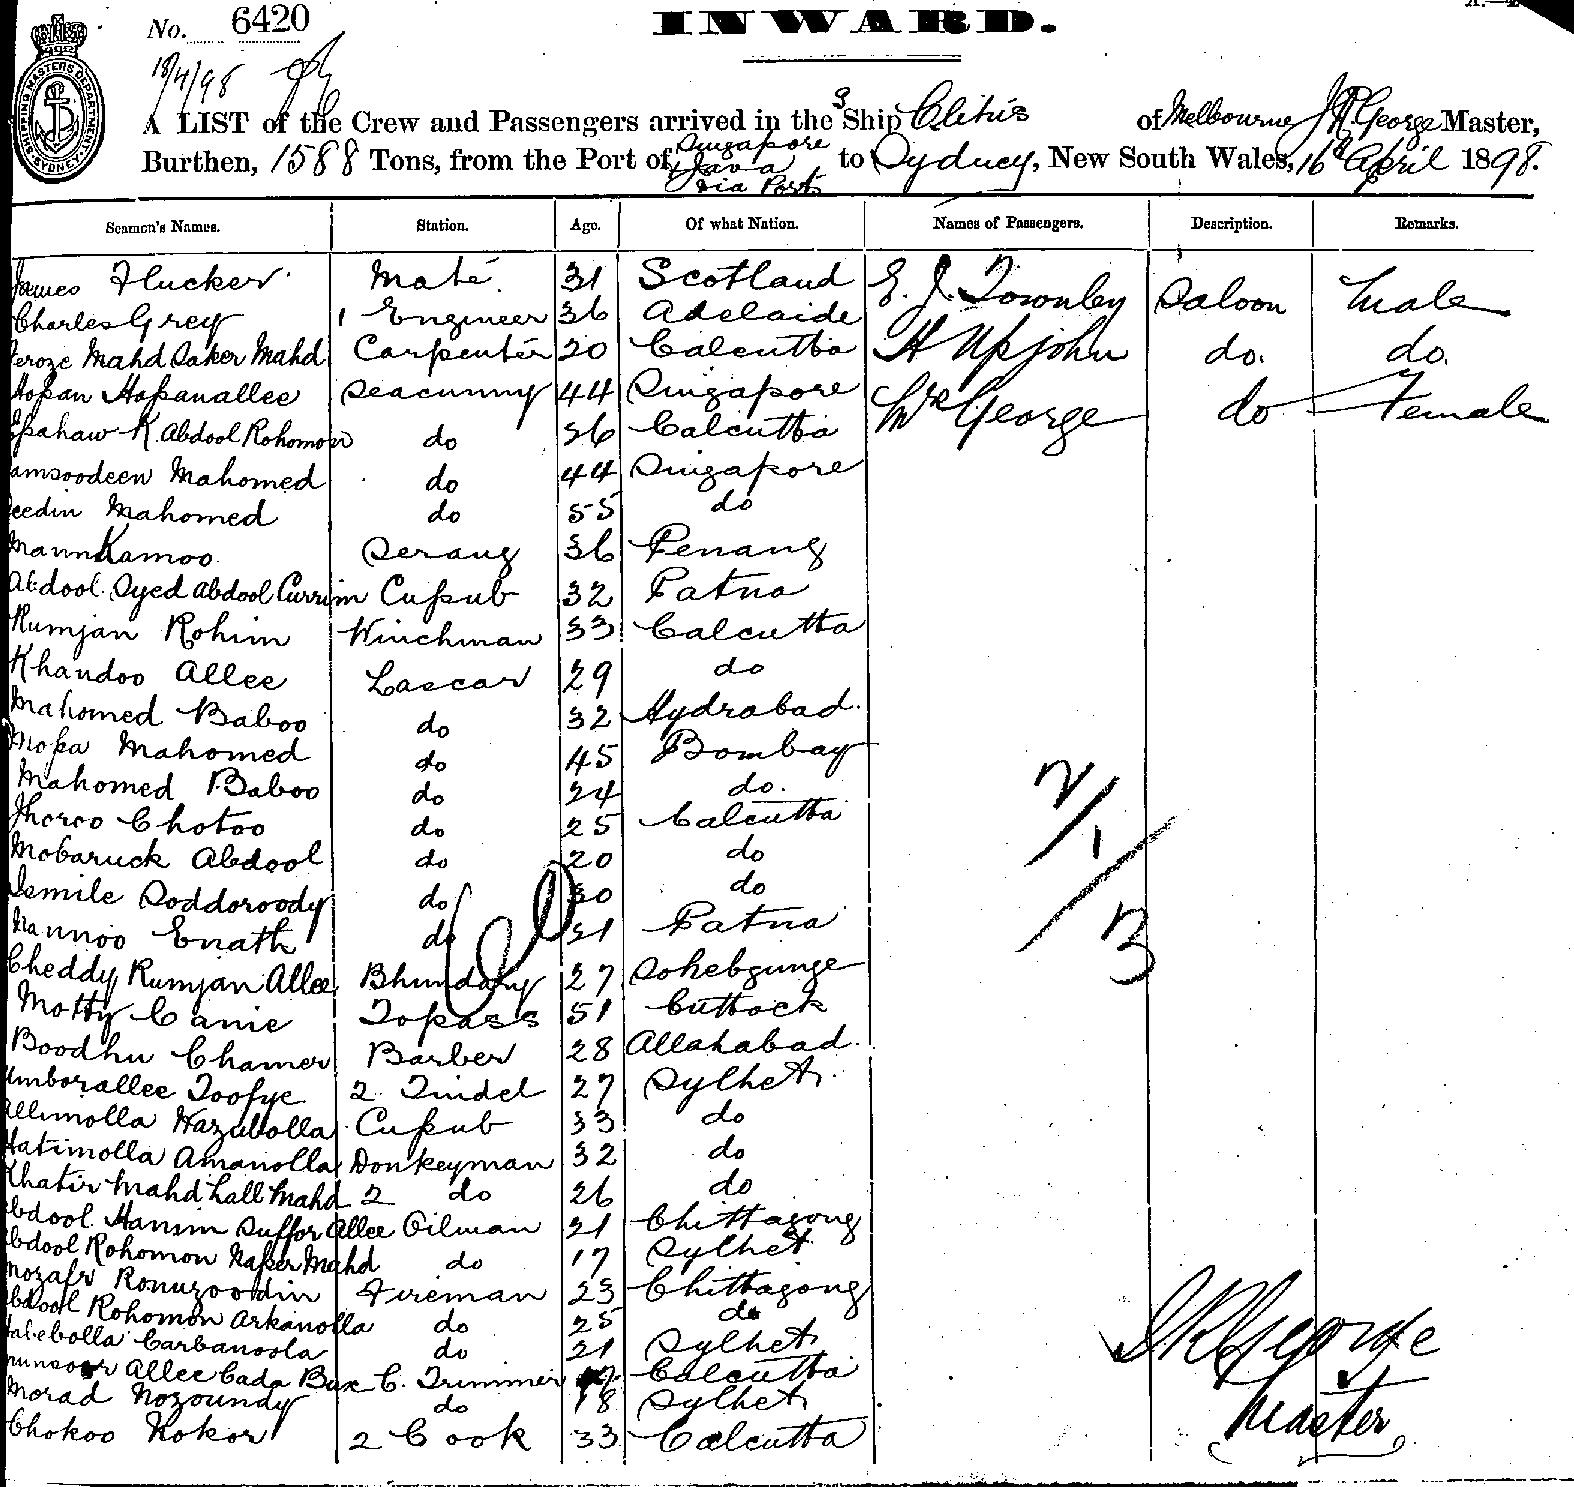 No. 6420
INWARD.
18/4/98
SHIPPING MASTERS DEPARTMENT SYDNEY
A LIST of the Crew and Passengers arrived in the S Ship Clitus of Melbourne J R George Master,
Burthen, 1588 Tons, from the Port of Singapore Java via Ports to Sydney, New South Wales, 16th April 1898.
Seamen's Names. Station. Age. Of what Nation. Names of Passengers. Description. Remarks.
James Flucker Mate. 31 Scotland E. J. Townley Saloon Male
Charles Grey 1 Engineer 36 Adelaide
Feroze Mahd Saker Mahd Carpenter 20 Calcutta H Upjohn do. do.
Hossan Hossanallee Seacunny 44 Singapore Mrs George do Female
K Abdool Rohomon do 36 Calcutta
Samsoodeen Mahomed do 44 Singapore
Mahomed do 55 do
Kamoo Serang 36 Penang
Abdool Syed Abdool Currim Cussub 32 Patna
Rumjan Rohim Winchman 33 Calcutta
Khandoo Allee Lascar 29 do
Mahomed Baboo do 32 Hydrabad.
Mossa Mahomed do 45 Bombay
Mahomed Baboo do 24 do.
Jhoroo Chotoo do 25 Calcutta
Mobaruck Abdool do 20 do
Ismile Soddoroody do 30 do
Mannoo Enath do 31 Patna
Cheddy Rumjan Allee Bhundary 27 Sohebgunge
Motty Canie Topass 51 Cuttock
Boodhu Chamer Barber 28 Allahabad.
Umborallee Toofye 2 Tindel 27 Sylhet.
Allimolla Wazubolla Cussub 33 do
Hatimolla Amanolla Donkeyman 32 do
Khatir Mahd Lall Mahd 2 do 26 do
Abdool Hamim Suffor Allee Oilman 21 Chittagong
Abdool Rohomon Naser Mahd do 17 Sylhet
Mozafr Ronuzoodin Fireman 23 Chittagong
Abdool Rohomon Arkanolla do 25 do
Carbanoola do 21 Sylhet
Munsoor Allee Cada Bux C. Trimmer Calcutta
Morad Nozoundy do 18 Sylhet
Chokoo Kokor 2 Cook 33 Calcutta
J R George
Master